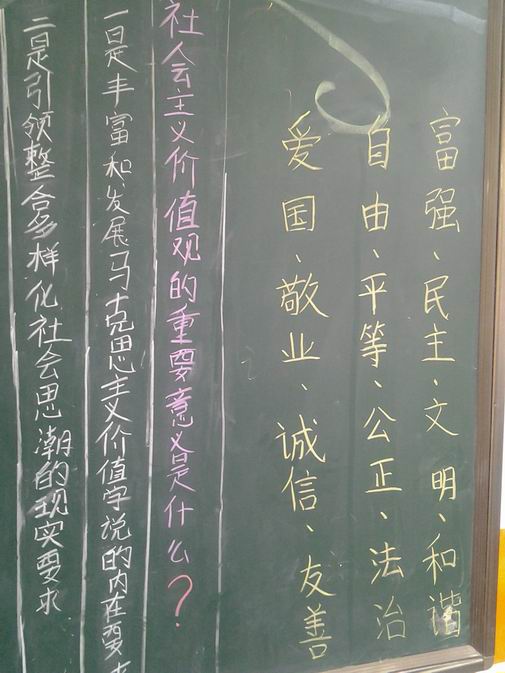 富强、民主、文明、和谐
自由、平等、公正、法治
爱国、敬业、诚信、友善
社会主义价值观的重要意义是什么?
一是丰富和发展马克思主义价值学说的内在要求
二是引领整合多样化社会思潮的现实要求